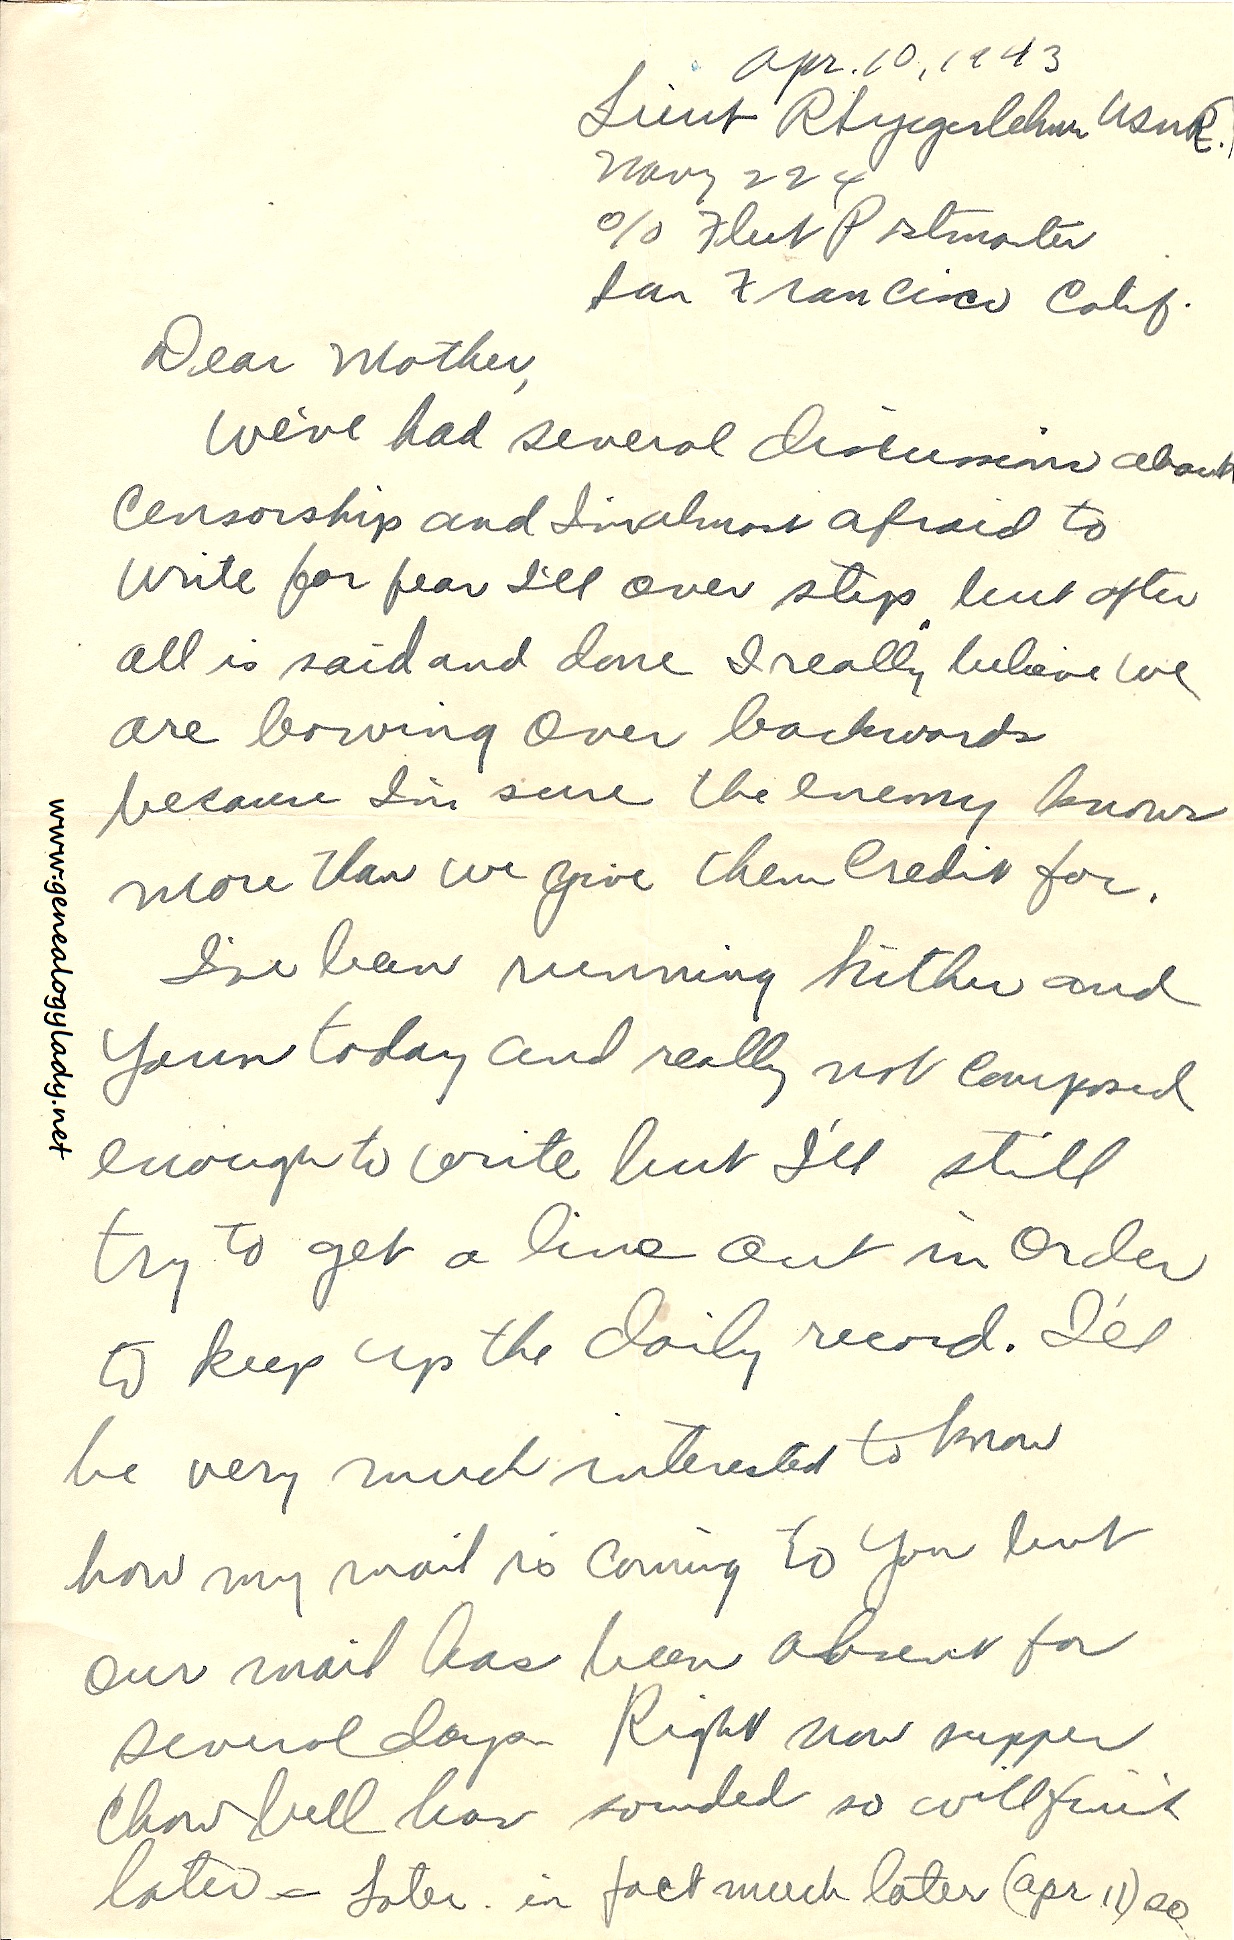 Apr. 10, 1943
Lieut R Yegerlehner USNR.
Navy 224
c/o Fleet Postmaster
San Francisco Calif.
Dear Mother,
We've had several discussions about
censorship and I'm almost afraid to
write for fear I'll over step, but after
all is said and done I really believe we
are bowing over backwards
because I'm sure the enemy knows
more than we give them credit for.
I've been running hither and
yown today and really not composed
enough to write but I'll still
try to get a line out in order
to keep up the daily record. I'll
be very much interested to know
how my mail is coming to you but
our mail has been absent for
several days Right now supper
chow bell has sounded so will finish
later = Later. in fact much later (Apr 11) so
www.genealogylady.net